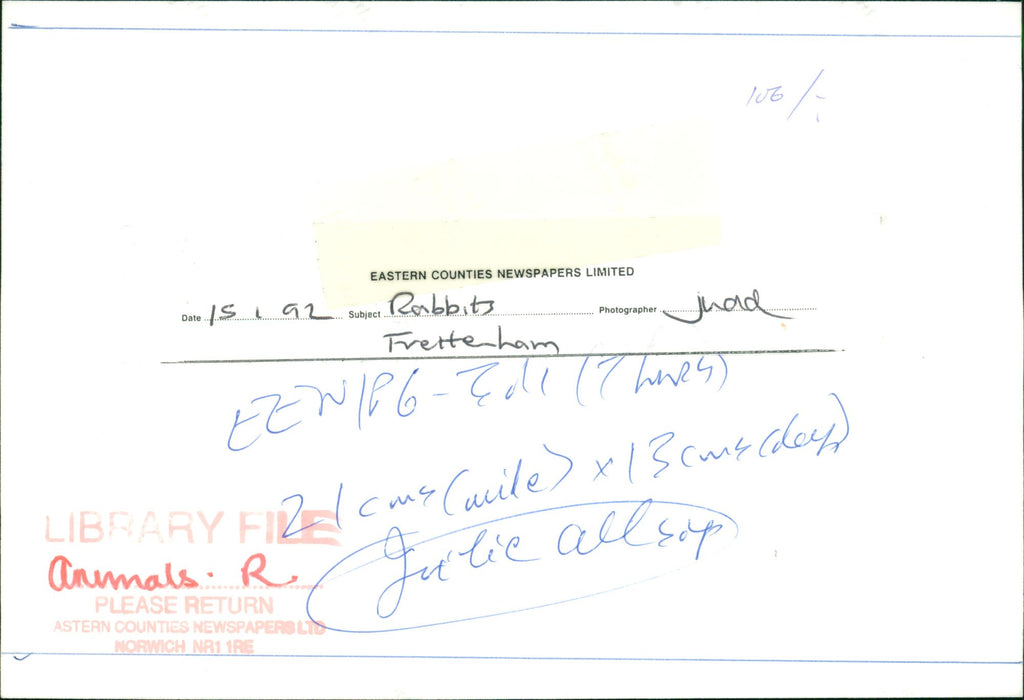 106/-
EASTERN COUNTIES NEWSPAPERS LIMITED
Date 15.1.92 Subject Rabbits Photographer Judd
Frettenham
EEN/P6 - Ed1 (Thurs)
21cms (wide) x 13cms (deep)
Julie Allsop
LIBRARY FILE
Animals. R.
PLEASE RETURN
ASTERN COUNTIES NEWSPAPERS LTD
NORWICH NR1 1RE